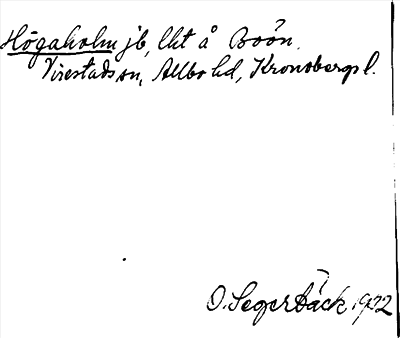 Högaholm jb, lht å Boön.
Virestads sn, Allbo hd, Kronobergs l.
O. Segerbäck 1922